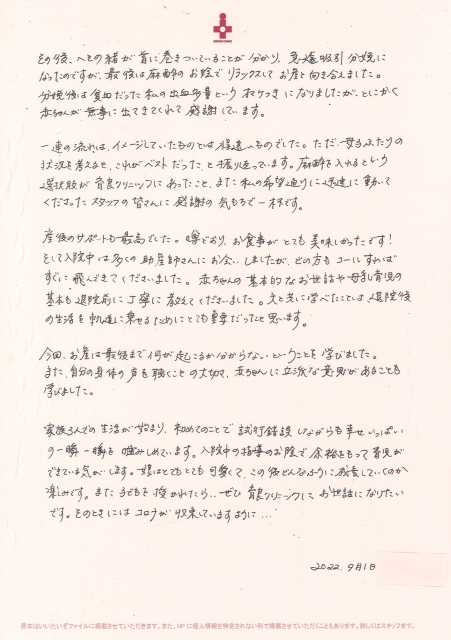 その後、へその緒が首に巻きついていることが分かり、急遽吸引分娩に
なったのですが、最後は麻酔のお陰でリラックスしてお産と向き合えました。
分娩後は貧血だった私の出血多量というオマケつきになりましたが、とにかく
赤ちゃんが無事に出てきてくれて感謝しています。
一連の流れは、イメージしていたものとは程遠いものでした。ただ、母子ふたりの
状況を考えると、これがベストだった、と振り返っています。麻酔を入れるという
選択肢が育良クリニックにあったこと、また私の希望通りに迅速に動いて
くださったスタッフの皆さんに感謝の気もちで一杯です。
産後のサポートも最高でした。噂どおり、お食事がとても美味しかったです！
そして入院中は多くの助産師さんにお会いしましたが、どの方もコールすれば
すぐに飛んできてくださいました。赤ちゃんの基本的なお世話や母乳育児の
基本も退院前に丁寧に教えてくださいました。夫と共に学べたことは、退院後
の生活を軌道に乗せるためにとても重要だったと思います。
今回、お産は最後まで何が起こるか分からないということを学びました。
また、自分の身体の声を聴くことの大切さ、赤ちゃんに立派な意思があることも
学びました。
家族3人での生活が始まり、初めてのことで試行錯誤しながらも幸せいっぱい
の一瞬一瞬を噛みしめています。入院中の指導のお陰で余裕をもって育児が
できている気がします。娘はとてもとても可愛くて、この後どんなふうに成長していくのか
楽しみです。また子どもを授かれたら、ぜひ育良クリニックにお世話になりたい
です。そのときにはコロナが収束していますように…
2022.9月1日
原本はいいたいぞファイルに掲載させていただきます。また、HPに個人情報を特定されない形で掲載させていただくこともあります。詳しくはスタッフまで。